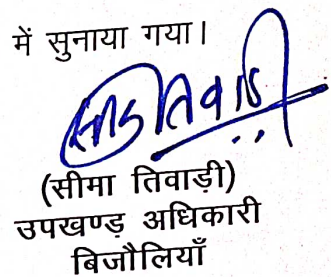 में सुनाया गया।
(सीमा तिवाड़ी)
उपखण्ड़ अधिकारी
बिजौलियाँ